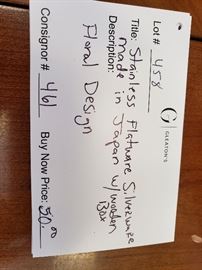 Lot # 458
G GLEATON'S
Title: Stainless Flatware Silverware
made in Japan w/ wooden
Box
Description:
Floral Design
Consignor # 461 Buy Now Price: 50.00